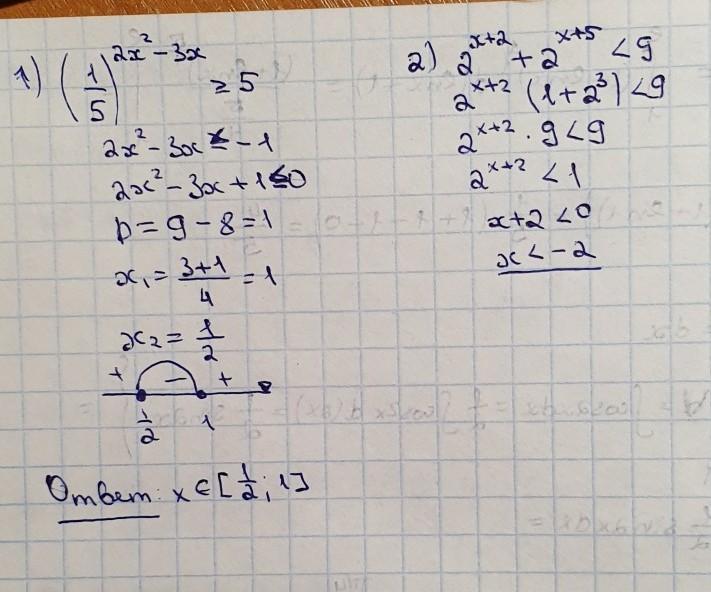 1) (1/5)^(2x²-3x) ≥ 5
2x² - 3x ≤ -1
2x² - 3x + 1 ≤ 0
D = 9 - 8 = 1
x₁ = (3+1)/4 = 1
x₂ = 1/2
+ - +
1/2 1
Ответ: x ∈ [1/2; 1]
2) 2^(x+2) + 2^(x+5) < 9
2^(x+2) (1 + 2³) < 9
2^(x+2) · 9 < 9
2^(x+2) < 1
x + 2 < 0
x < -2